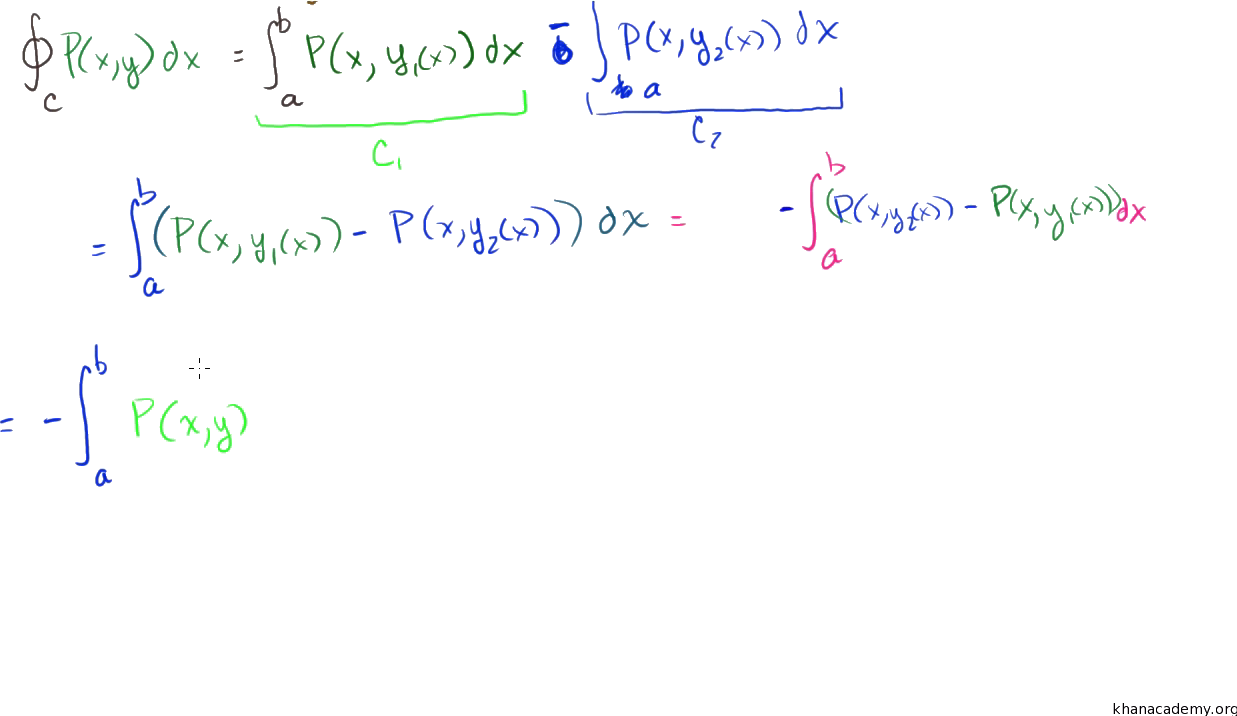 ∮_C P(x,y) dx = ∫_a^b P(x, y₁(x)) dx − ∫_a P(x, y₂(x)) dx
C₁ C₂
= ∫_a^b (P(x, y₁(x)) − P(x, y₂(x))) dx = − ∫_a^b (P(x, y₂(x)) − P(x, y₁(x))) dx
= − ∫_a^b P(x,y)
khanacademy.org